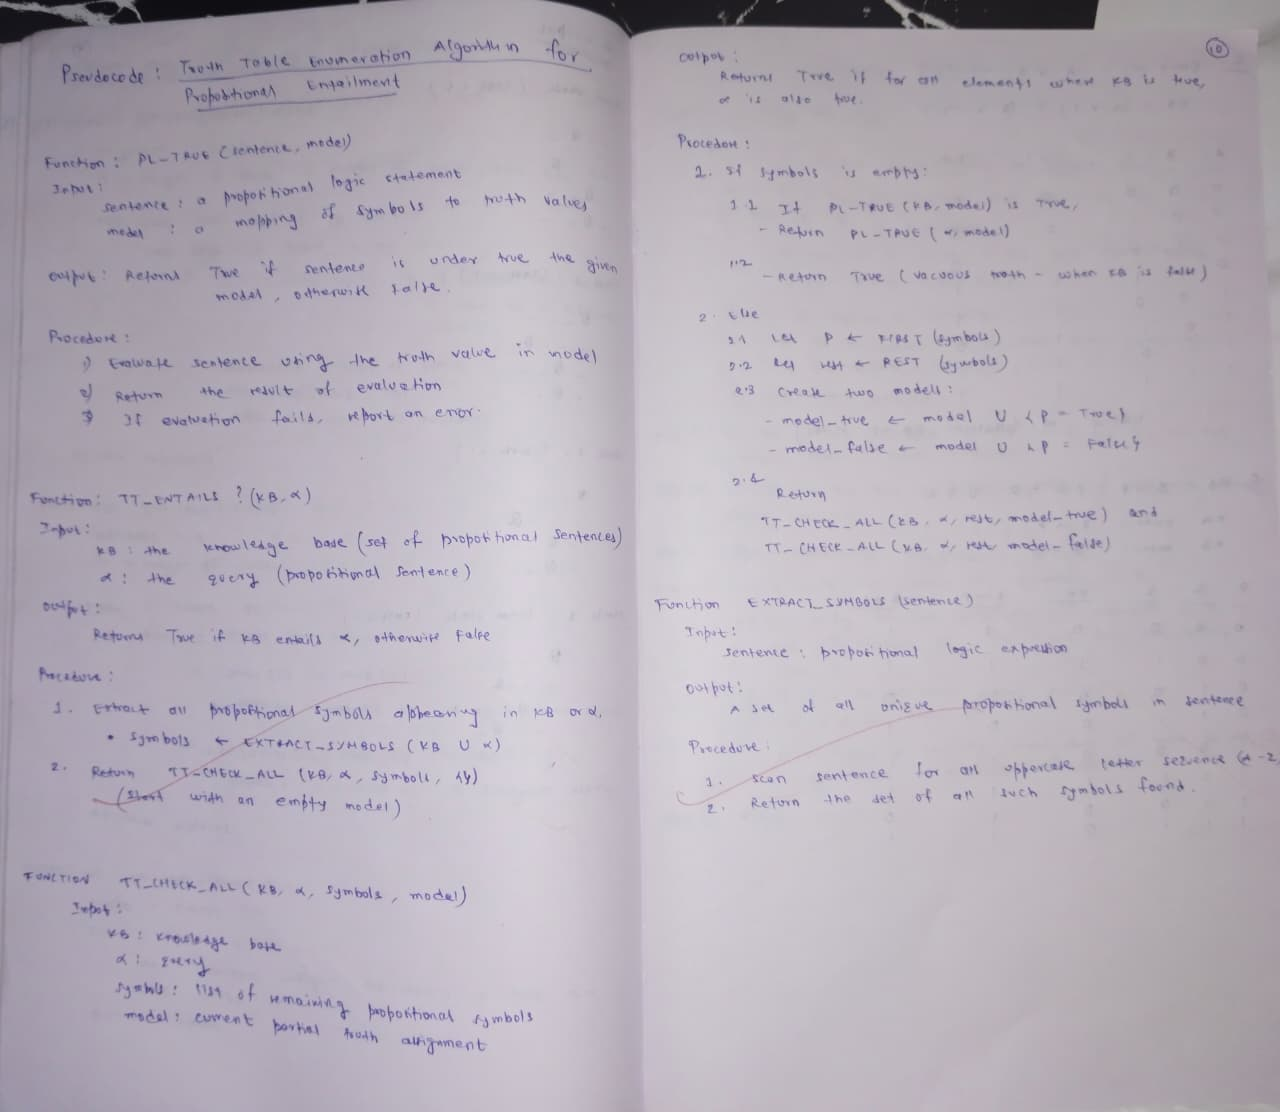 Pseudocode : Truth Table Enumeration Algorithm for
Propositional Entailment
Function : PL-TRUE (sentence, model)
Input :
sentence : a propositional logic statement
model : a mapping of symbols to truth values
output : Returns True if sentence is under true the given
model, otherwise false.
Procedure :
1) Evaluate sentence using the truth value in model
2) Return the result of evaluation
3 If evaluation fails, report an error.
Function: TT_ENTAILS ? (KB, α)
Input :
KB : the knowledge base (set of propositional sentences)
α : the query (propositional sentence)
output :
Returns True if KB entails α, otherwise False
Procedure :
1. Extract all propositional symbols appearing in KB or α,
• symbols ← EXTRACT_SYMBOLS (KB U α)
2. Return TT_CHECK_ALL (KB, α, symbols, {})
(start with an empty model)
FUNCTION TT_CHECK_ALL (KB, α, symbols, model)
Input :
KB : knowledge base
α : query
symbols : list of remaining propositional symbols
model : current partial truth assignment
10
output :
Returns True if for all elements where KB is true,
α is also true.
Procedure :
1. If symbols is empty:
1.1 If PL-TRUE (KB, model) is True,
- Return PL-TRUE (α, model)
1.2
- Return True (vacuous truth - when KB is false)
2. Else
2.1 Let P ← FIRST (symbols)
2.2 Let rest ← REST (symbols)
2.3 Create two models :
- model_true ← model U {P = True}
- model_false ← model U {P = False}
2.4
Return
TT_CHECK_ALL (KB, α, rest, model_true) and
TT_CHECK_ALL (KB, α, rest model_false)
Function EXTRACT_SYMBOLS (sentence)
Input :
sentence : propositional logic expression
output :
A set of all unique propositional symbols in sentence
Procedure :
1. Scan sentence for all uppercase letter sequence (A-Z
2. Return the set of all such symbols found.